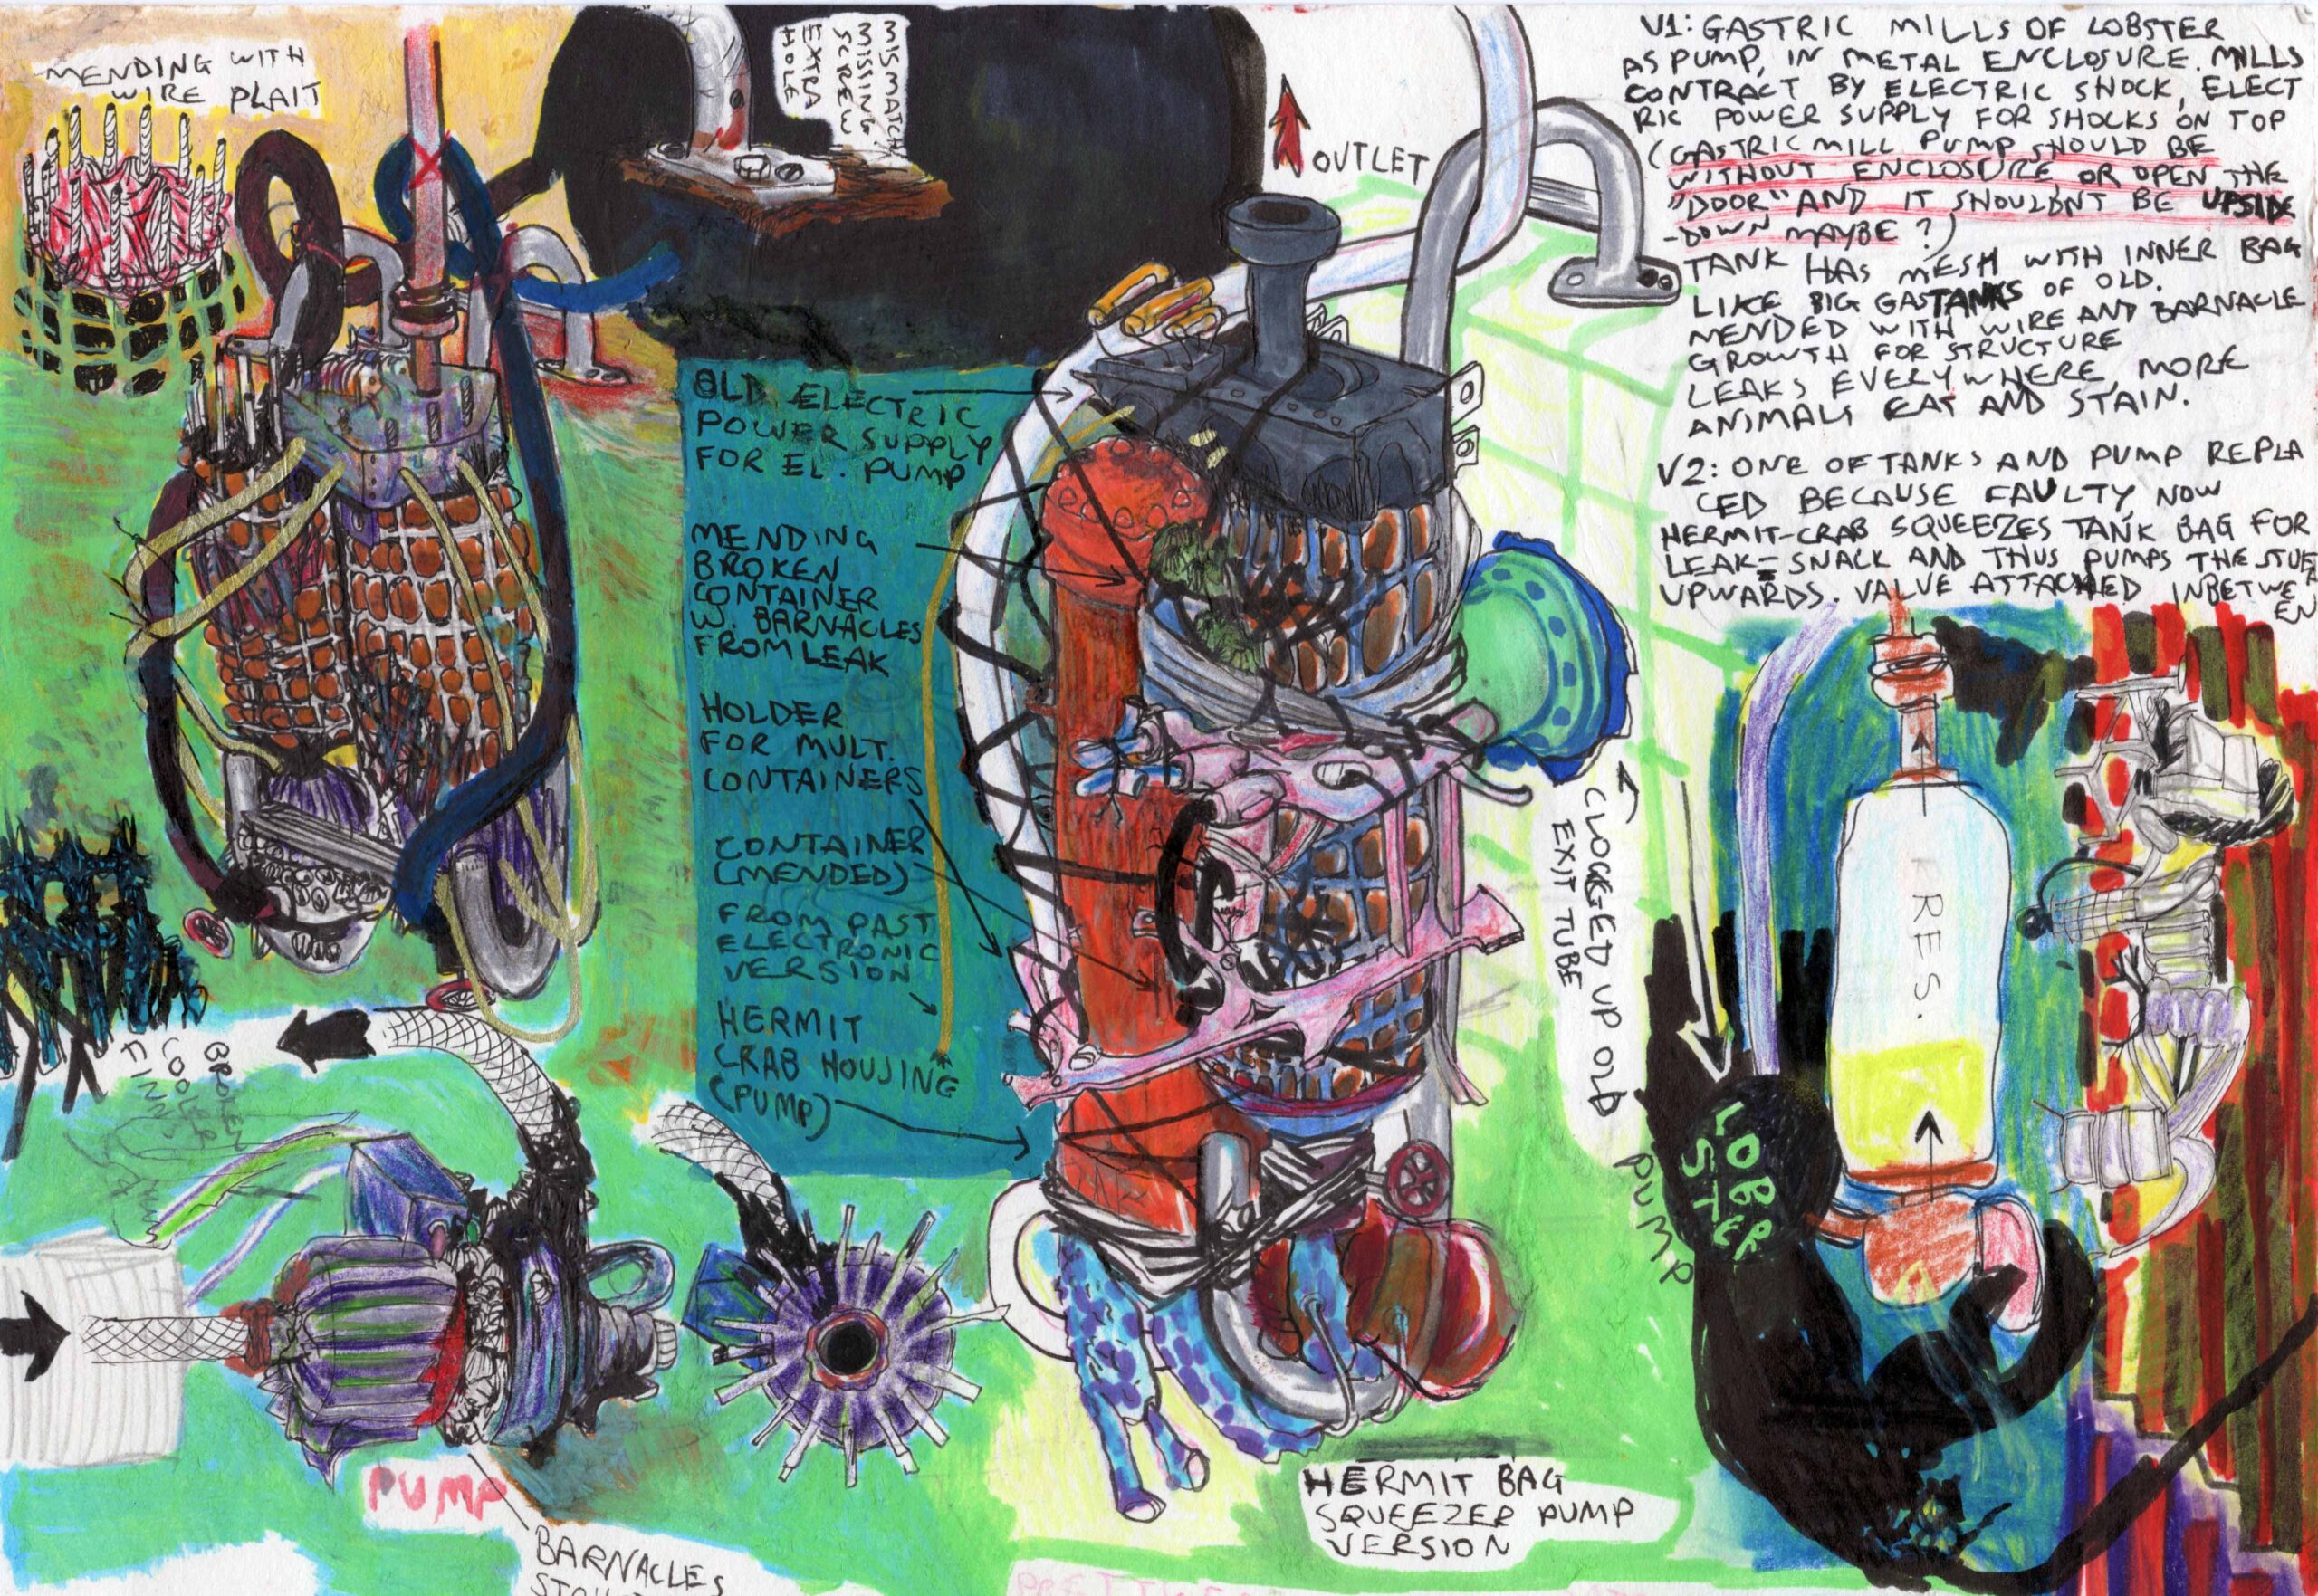 MENDING WITH
WIRE PLAIT
MISMATCH,
MISSING
SCREW
EXTRA
HOLE
OUTLET
V1: GASTRIC MILLS OF LOBSTER
AS PUMP, IN METAL ENCLOSURE. MILLS
CONTRACT BY ELECTRIC SHOCK, ELECT
RIC POWER SUPPLY FOR SHOCKS ON TOP
(GASTRIC MILL PUMP SHOULD BE
WITHOUT ENCLOSURE, OR OPEN THE
"DOOR" AND IT SHOULDNT BE UPSIDE
-DOWN MAYBE?)
TANK HAS MESH WITH INNER BAG
LIKE BIG GASTANKS OF OLD.
MENDED WITH WIRE AND BARNACLE
GROWTH FOR STRUCTURE
LEAKS EVERYWHERE, MORE
ANIMALS EAT AND STAIN.
V2: ONE OF TANKS AND PUMP REPLA
CED BECAUSE FAULTY, NOW
HERMIT-CRAB SQUEEZES TANK BAG FOR
LEAK = SNACK AND THUS PUMPS THE STUFF
UPWARDS. VALVE ATTACHED INBETWE
EN
OLD ELECTRIC
POWER SUPPLY
FOR EL. PUMP
MENDING
BROKEN
CONTAINER
W. BARNACLES
FROM LEAK
HOLDER
FOR MULT.
CONTAINERS
CONTAINER
(MENDED)
FROM PAST
ELECTRONIC
VERSION
HERMIT
CRAB HOUSING
(PUMP)
CLOGGED UP OLD
EXIT TUBE
RES.
LOB
STER
PUMP
BROKEN
COOLER
FINN
PUMP
BARNACLES
HERMIT BAG
SQUEEZER PUMP
VERSION